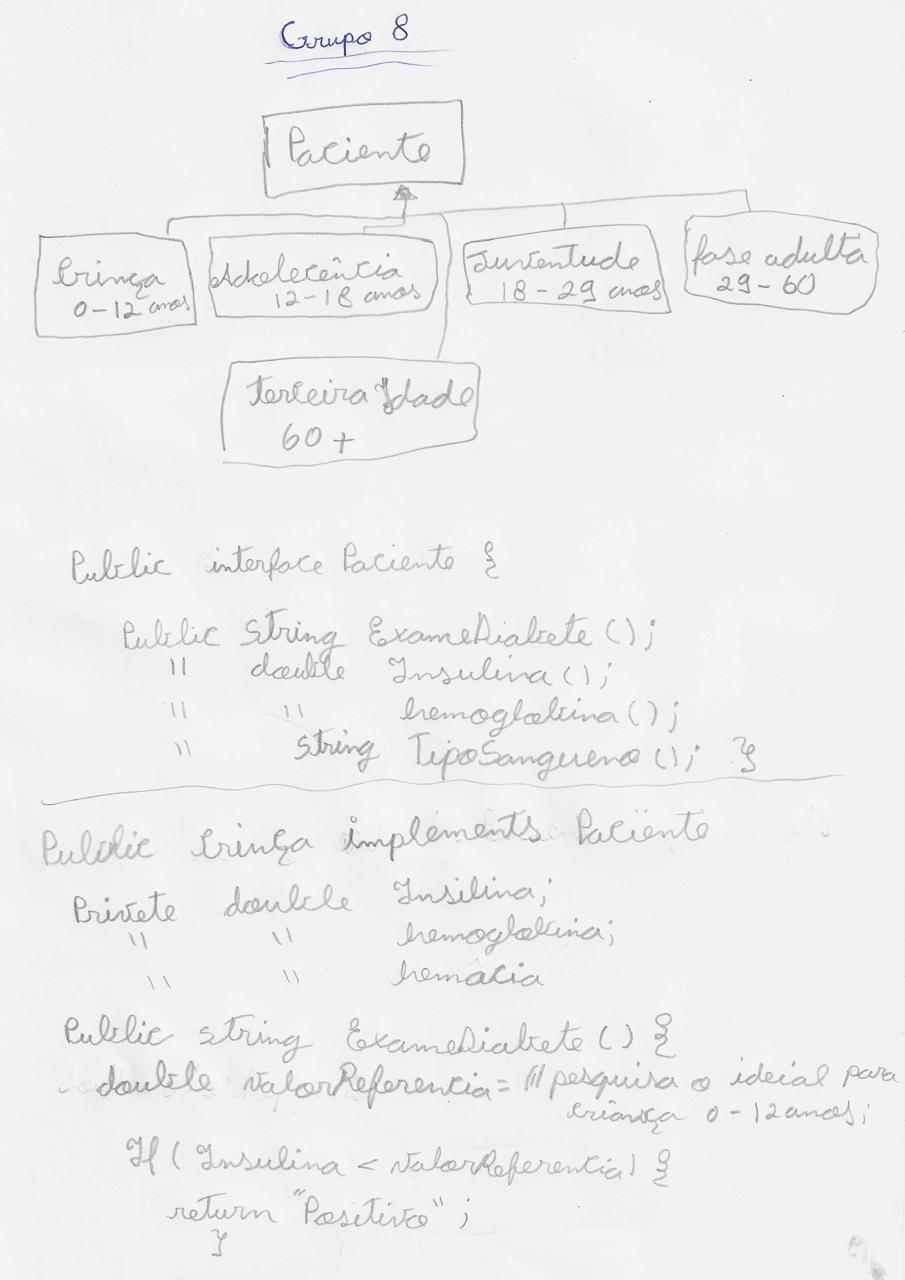 Grupo 8
Paciente
Criança
0-12 anos
Adolecência
12-18 anos
Juventude
18-29 anos
fase adulta
29-60
terceira Idade
60+
Public interface Paciente {
Public string ExameDiabete();
" double Insulina();
" " hemoglobina();
" string TipoSangueno(); }
Public Criança implements Paciente
Privete double Insilina;
" " hemoglobina;
" " hemácia
Public string ExameDiabete() {
double valorReferencia = /// pesquisa o ideial para
criança 0-12 anos;
If (Insulina < valorReferencia) {
return "Positivo";
}